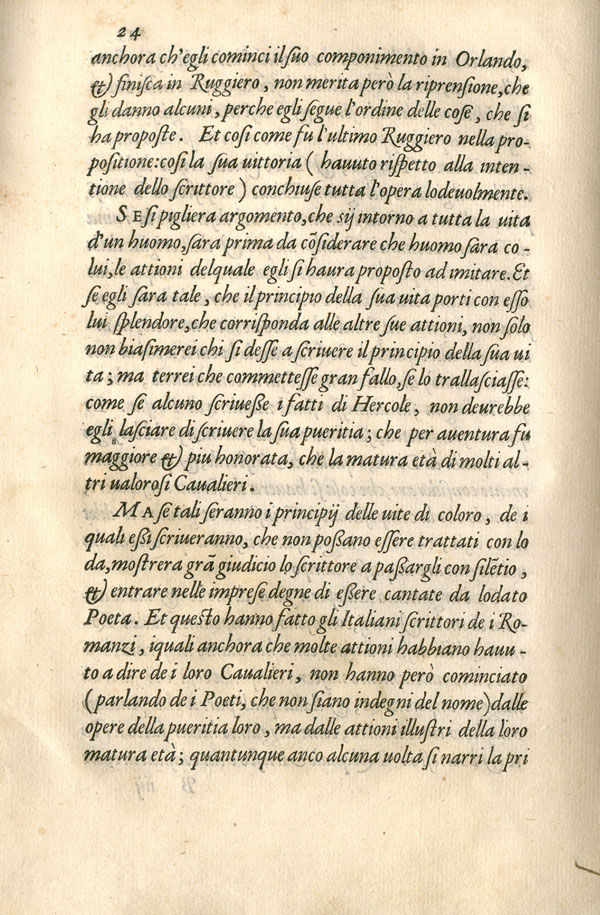 24
anchora ch'egli cominci il suo componimento in Orlando,
& finisca in Ruggiero, non merita però la riprensione, che
gli danno alcuni, perche egli segue l'ordine delle cose, che si
ha proposte. Et cosi come fu l'ultimo Ruggiero nella pro-
positione: cosi la sua uittoria (hauuto rispetto alla inten-
tione dello scrittore) conchiuse tutta l'opera lodeuolmente.
SE si pigliera argomento, che sij intorno a tutta la vita
d'un huomo, sara prima da cõsiderare che huomo sara co-
lui, le attioni delquale egli si haura proposto ad imitare. Et
se egli sara tale, che il principio della sua vita porti con esso
lui splendore, che corrisponda alle altre sue attioni, non solo
non biasimerei chi si desse a scriuere il principio della sua ui
ta; ma terrei che commettesse gran fallo, se lo trallasciasse:
come se alcuno scriuesse i fatti di Hercole, non deurebbe
egli lasciare di scriuere la sua pueritia; che per auentura fu
maggiore & piu honorata, che la matura età di molti al-
tri valorosi Caualieri.
MA se tali seranno i principij delle uite di coloro, de i
quali essi scriueranno, che non possano essere trattati con lo
da, mostrera grã giudicio lo scrittore a passargli con silẽtio,
& entrare nelle imprese degne di essere cantate da lodato
Poeta. Et questo hanno fatto gli Italiani scrittori de i Ro-
manzi, iquali anchora che molte attioni habbiano hauu-
to a dire de i loro Caualieri, non hanno però cominciato
(parlando de i Poeti, che non siano indegni del nome) dalle
opere della pueritia loro, ma dalle attioni illustri della loro
matura età; quantunque anco alcuna uolta si narri la pri